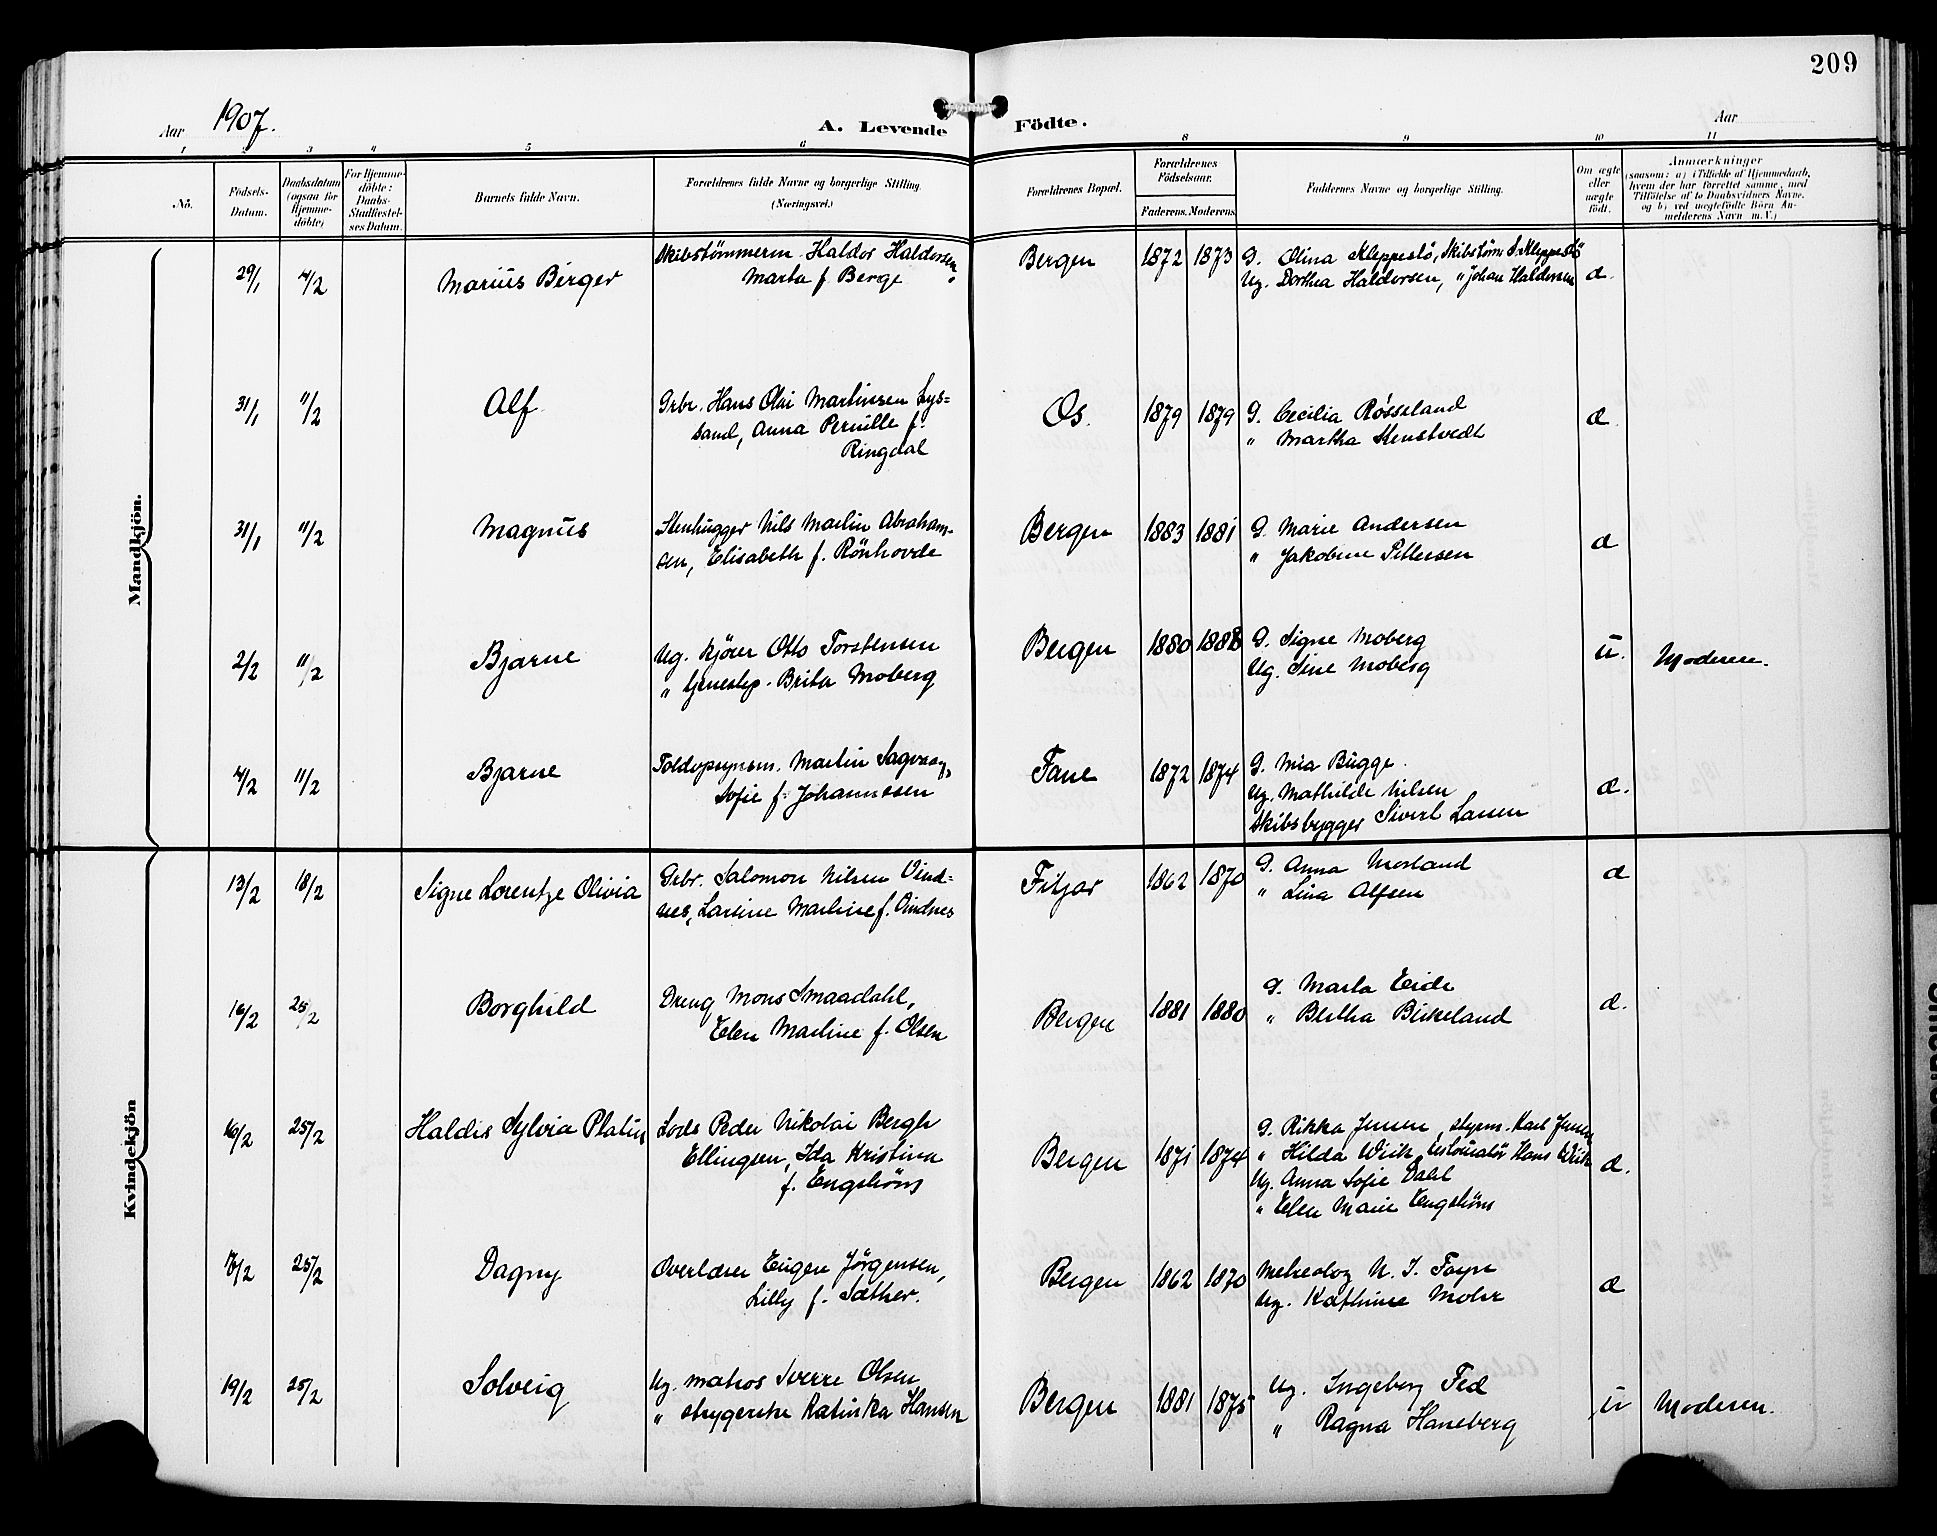 209
Aar 1907.
A. Levende Födte.
Aar
1 2 3 4 5 6 8 9 10 11
No.
Födsels-Datum.
Daabsdatum (ogsaa for Hjemme-döbte)
For Hjemme-döbte: Daabs-Stadfæstel-ses Datum.
Barnets fulde Navn.
Forældrenes fulde Navne og borgerlige Stilling. (Næringsvei.)
Forældrenes Bopæl.
Forældrenes Födselsaar.
Faderens. Moderens.
Faddernes Navne og borgerlige Stilling.
Om ægte eller uægte födt.
Anmærkninger
(saasom: a) i Tilfælde af Hjemmedaab, hvem der har forrettet samme, med Tilföielse af to Daabsvidners Navne, og b) ved uægtefödte Börn An-melderens Navn m. V.)
Mandkjön.
29/1 4/2 Marius Birger
Skibstømmerm. Haldor Haldorsen,
Marta f. Berge "
Bergen 1872 1873
G. Olina Kleppestö, Skibstöm. S. Kleppestö
Ug. Dorthea Haldorsen, " Johan Haldorsen
æ.
31/1 11/2 Alf
Grbr. Hans Olai Martinsen Lys=
sand, Anna Pernille f.
Ringdal
Os. 1879 1879
G. Cecilia Røsseland
" Martha Stenstvedt
æ.
31/1 11/2 Magnus
Stenhugger Nils Martin Abraham-
sen, Elisabeth f. Rönhovde
Bergen 1883 1881
G. Marie Andersen
" Jakobine Pettersen
æ
2/2 11/2 Bjarne
Ug. Kjører Otto Torstensen
" tjenestep. Brita Moberg
Bergen 1880 1888
G. Signe Moberg
Ug. Sine Moberg
u. Moderen.
4/2 11/2 Bjarne
Toldopsynsm. Martin Sagvaag,
Sofie f. Johannesen
Fane 1872 1874
G. Mia Bugge.
Ug. Mathilde Nilsen
Skibsbygger Sivert Larsen
æ.
Kvindekjön
13/2 18/2 Signe Lorentze Olivia
Grbr. Salomon Nilsen Vind=
nes, Larsine Martine f. Vindnes
Fitjar 1862 1870
G. Anna Mosland
" Lina Alfsen
æ
16/2 25/2 Borghild
Dreng Mons Smaadahl,
Elen Martine f. Olsen
Bergen 1881 1880
G. Marta Eide
" Bertha Birkeland
æ.
16/2 25/2 Haldis Sylvia Platin
Lods Peder Nikolai Bergh
Ellingsen, Ida Kristina
f. Engström
Bergen 1871 1874
G. Rikka Jensen, styrm. Karl Jensen
" Hilda Wiik, restauratör Hans Wiik
Ug. Anna Sofie Dahl
" Elen Marie Engström
æ.
17/2 25/2 Dagny
Overlærer Eugen Jörgensen,
Lilly f. Sæther.
Bergen 1862 1870
Metreolog N. J. Føyn
Ug. Kathrine Mohr
æ
19/2 25/2 Solveig
Ug. matros Sverre Olsen
" strygerske Katinka Hansen
Bergen 1881 1875
Ug. Ingeborg Fed
" Ragna Haneberg
u Moderen.